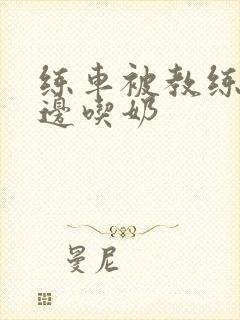 练車被教练
邊喫奶
曼尼